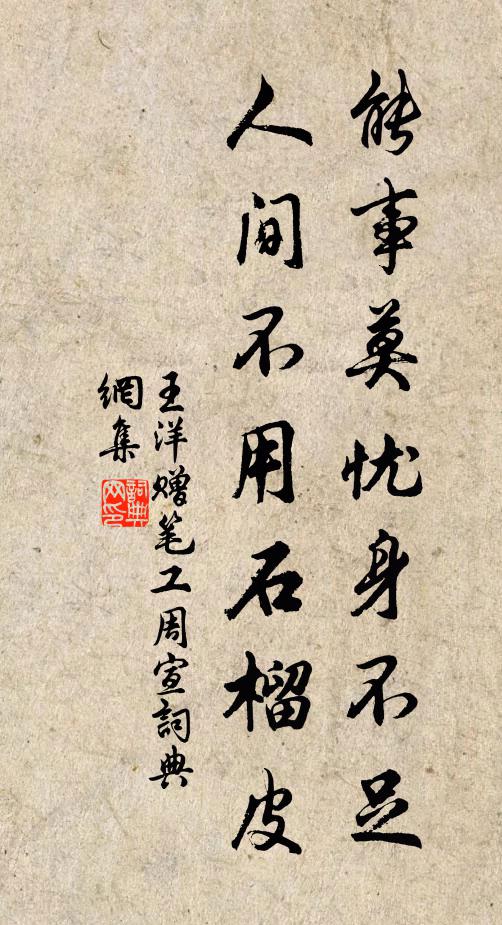 能事莫忧身不足
人间不用石榴皮
王洋赠笔工周宣詞典
網集
詞典
网印